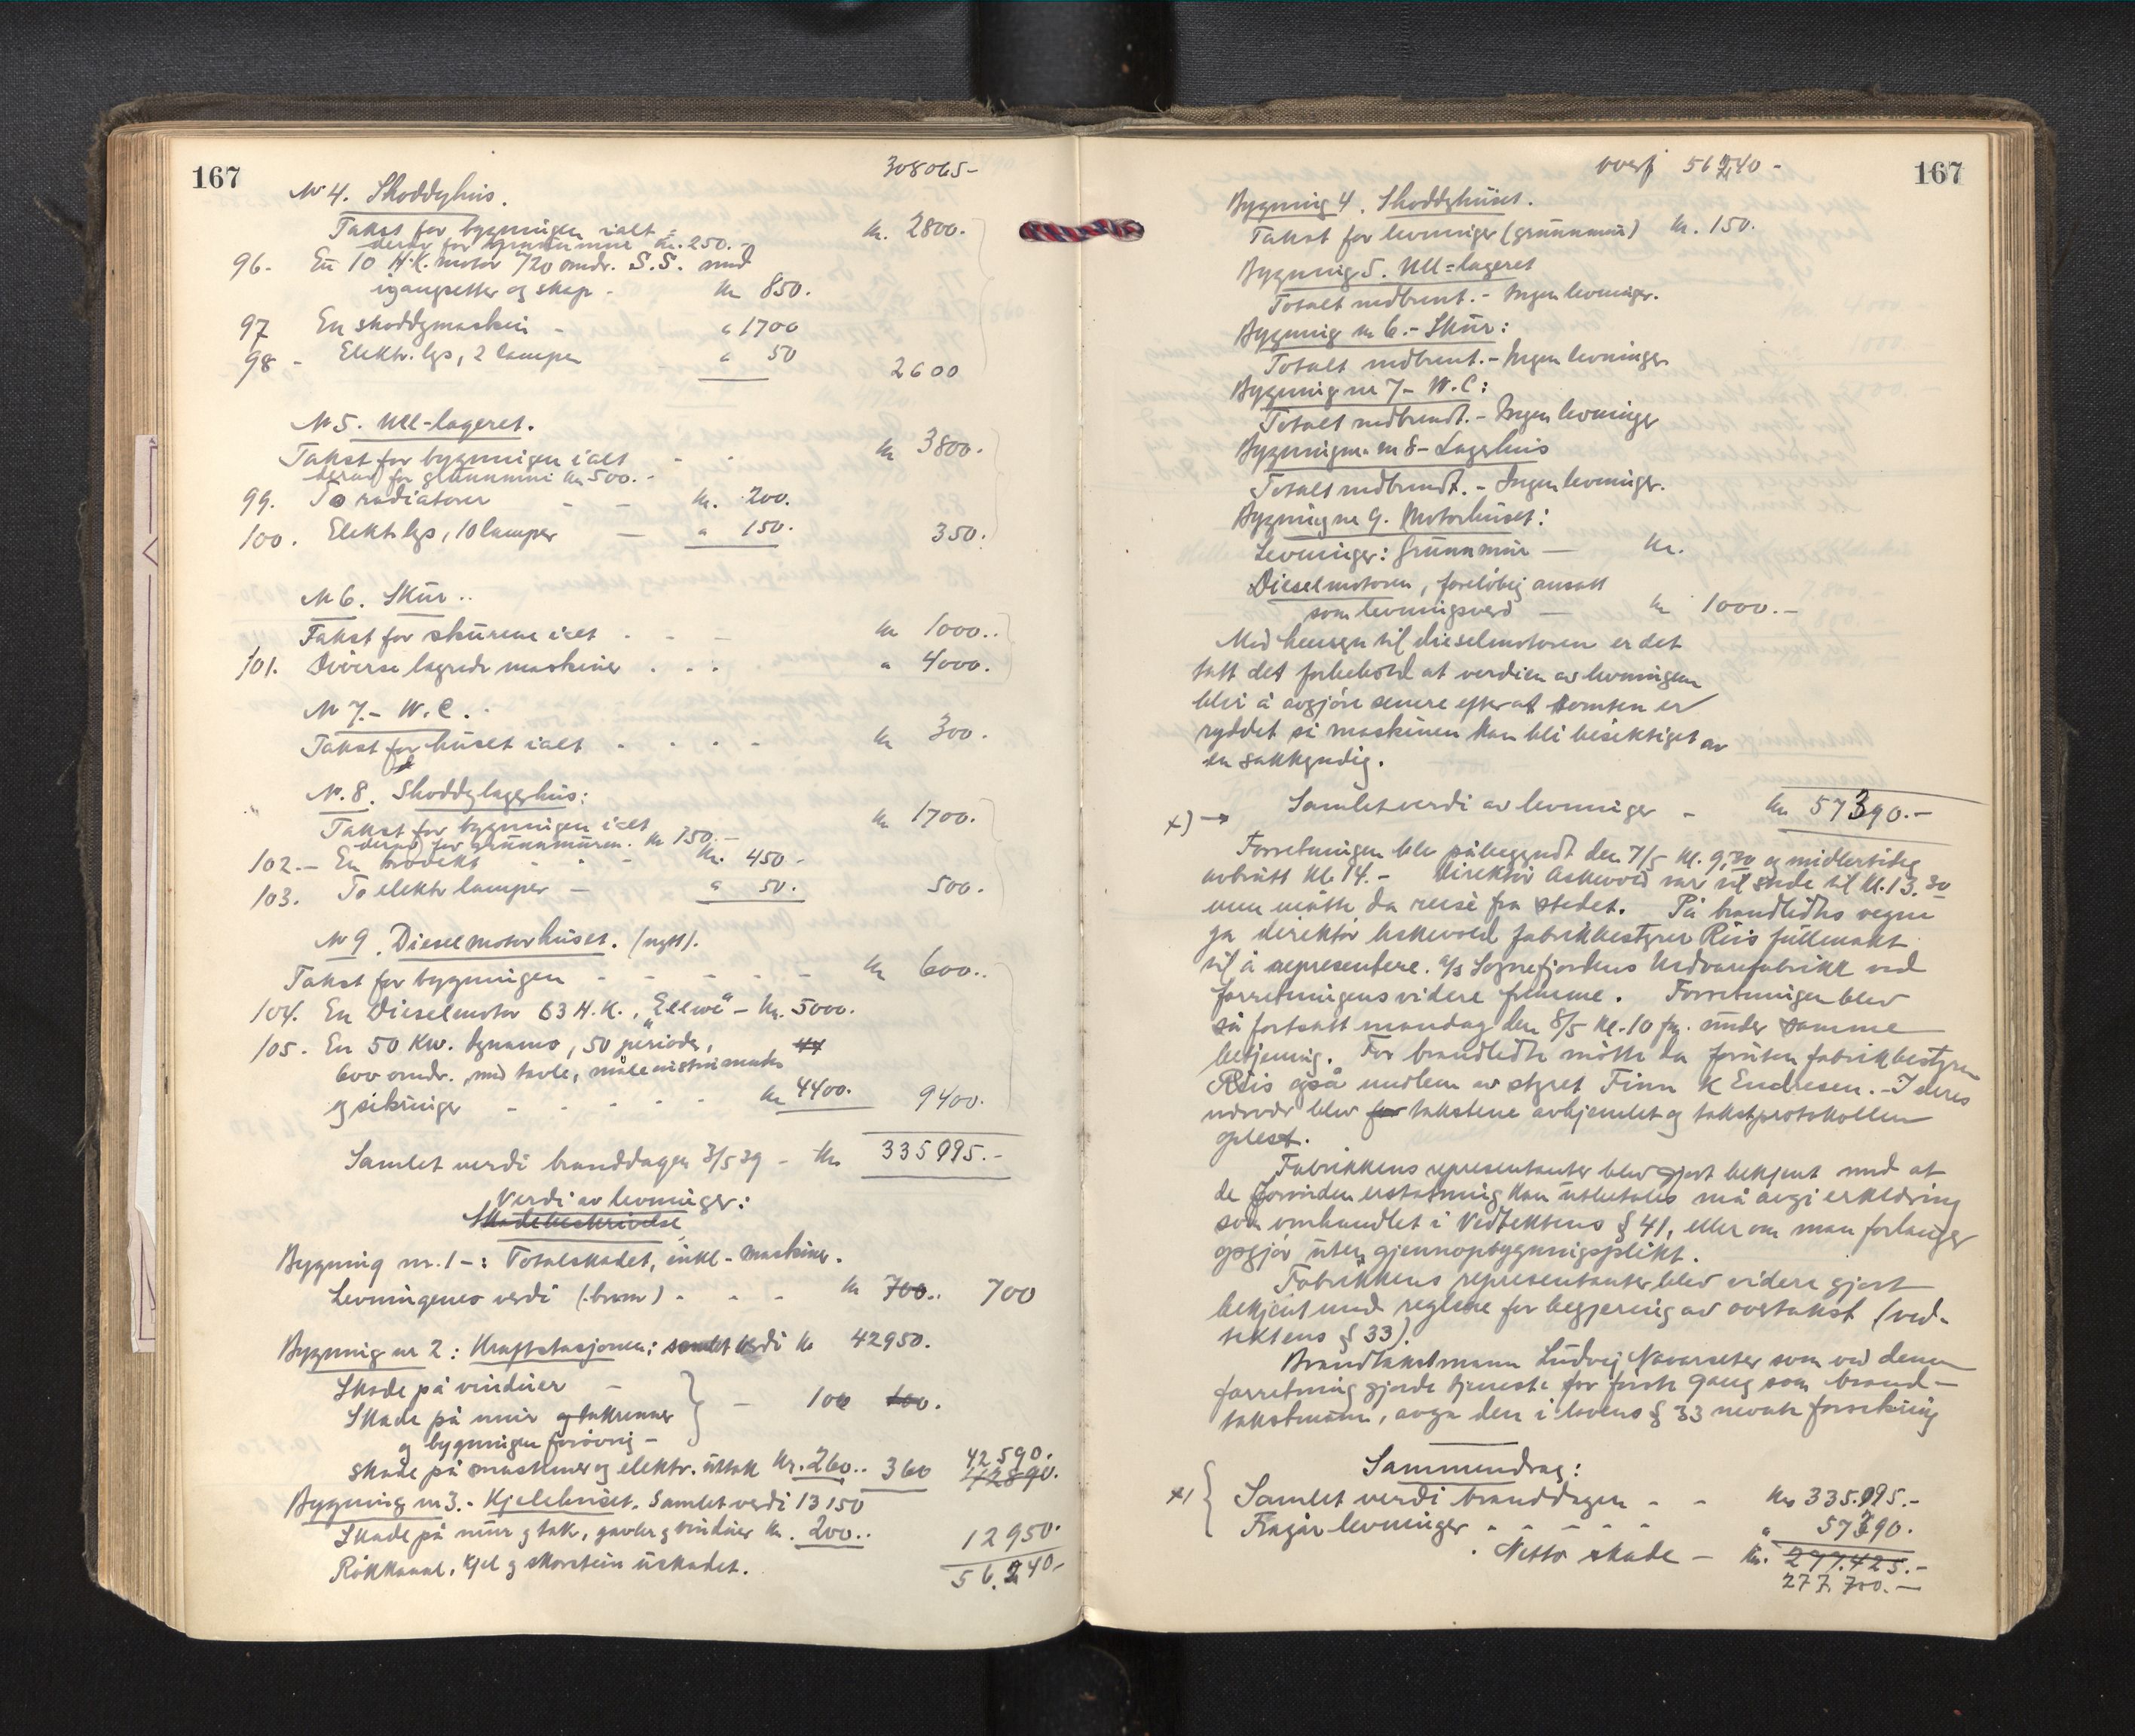 167
308065-
Nr 4. Shoddyhus.
Takst for bygningen ialt - kr. 2800.
derav for grunnmur kr. 250.-
96- En 10 H.K. motor 720 omdr. S.S. med
igangsetter og skap - kr 850.
97 En shoddymaskin - " 1700
98 - Elektr. lys, 2 lamper " 50 2600
Nr 5. Ull-lageret.
Takst for bygningen ialt - - kr 3800.
derav for grunnmur kr 500.-
99. To radiatorer - - kr. 200.
100. Elektr lys, 10 lamper — " 150. 350.
Nr 6. Skur..
Takst for skurene ialt - - - kr 1000..
101. Diverse lagrede maskiner . . . " 4000.
Nr 7.- W.C.
Takst for huset ialt . . . . kr 300.
Nr. 8. Shoddylagerhus:
Takst for bygningen ialt kr 1700.
derav for grunnmuren. kr 150.-
102.- En - - - kr. 450-
103. To elektr lamper - " 50. 500.
Nr 9. Dieselmotorhuset. (nytt).
Takst for bygningen - - - - - kr 600..
104. En Dieselmotor 63 H.K., "Ellwe" - kr. 5000.
105. En 50 Kw. dynamo, 50 perioder, 44
600 omdr., med tavle, måleinstrumenter
og sikringer - - - - - kr 4400. 9400.
Samlet verdi branddagen 3/5 39 - kr 335095.-
Verdi av levninger:
Skadebeskrivelse
Bygning nr. 1-: Totalskadet, inkl. maskiner.
Levningenes verdi (:brom) - - - kr 700.. 700
Bygning nr 2: Kraftstasjonen: samlet verdi kr 42950.
Skade på vinduer -
Skade på mur og takrenner - 100 100.
og bygningen forøvrig -
Skade på maskiner og elektr. uttak kr. 260.. 360 42590.
42890.
Bygning nr 3.- Kjelehuset. Samlet verdi 13150
Skade på mur og tak, gavler og vinduer kr. 200.. 12950.
Rökkanal, kjel og skorstein uskadet. 56.240-
167
overf 56240-
Bygning 4. Shoddyhuset.
Takst for levninger (grunnmur) kr. 150.
Bygning 5. Ull-lageret
Totalt nedbrent.- Ingen levninger.
Bygning nr 6.- Skur:
Totalt nedbrent.- Ingen levninger
Bygning nr 7- W.C:
Totalt nedbrendt.- Ingen levninger
Bygningen nr 8- Lagerhus
Totalt nedbrendt.- Ingen levninger.
Bygning nr 9. Motorhuset:
Levninger: Grunnmur — kr.
Dieselmotoren, foreløbig ansatt
som levningsverd — kr 1000.-
Med hensyn til dieselmotoren er det
tatt det forbehold at verdien av levningene
blir å avgjøre senere efter at tomten er
ryddet så maskinen kan bli besiktiget av
en sakkyndig.
x) → Samlet verdi av levninger - kr 57390.-
Forretningen blev påbegynndt den 7/5 kl. 9,30 og midlertidig
avbrutt kl 14.- Direktör Askevold var til stede til kl. 13.30
men måtte da reise fra stedet. På brandlidtes vegne
ga direktör Askevold fabrikkbestyrer Riis fullmakt
til å representere a/s Sognefjordens Uldvarefabrikk ved
forretningens videre fremme. Forretningen blev
så fortsatt mandag den 8/5 kl. 10 fm. under samme
betjening. For brandlidte møtte da foruten fabrikkbestyrer
Riis også medlem av styret Finn K Endresen.- I deres
nærvær blev for takstene avhjemlet og takstprotokollen
oplest.
Fabrikkens representanter blev gjort bekjent med at
de forinden erstatning kan utbetales må avgi erklæring
som omhandlet i Vedtektens § 41, eller om man forlanger
opgjör uten gjennopbygningsplikt.
Fabrikkens representanter blev videre gjort
bekjent med reglene for begjæring av overtakst (ved-
tektens § 33).
Brandtakstmann Ludvig Navarseter som ved denne
forretning gjorde tjeneste for første gang som brand-
takstmann, avga den i lovens § 33 nevnte forsikring
Sammendrag:
x) Samlet verdi branddagen - - kr 335.095.-
Fragår levninger - - - - - " 57390.
Netto skade - kr. 277.425.-
277.700.-